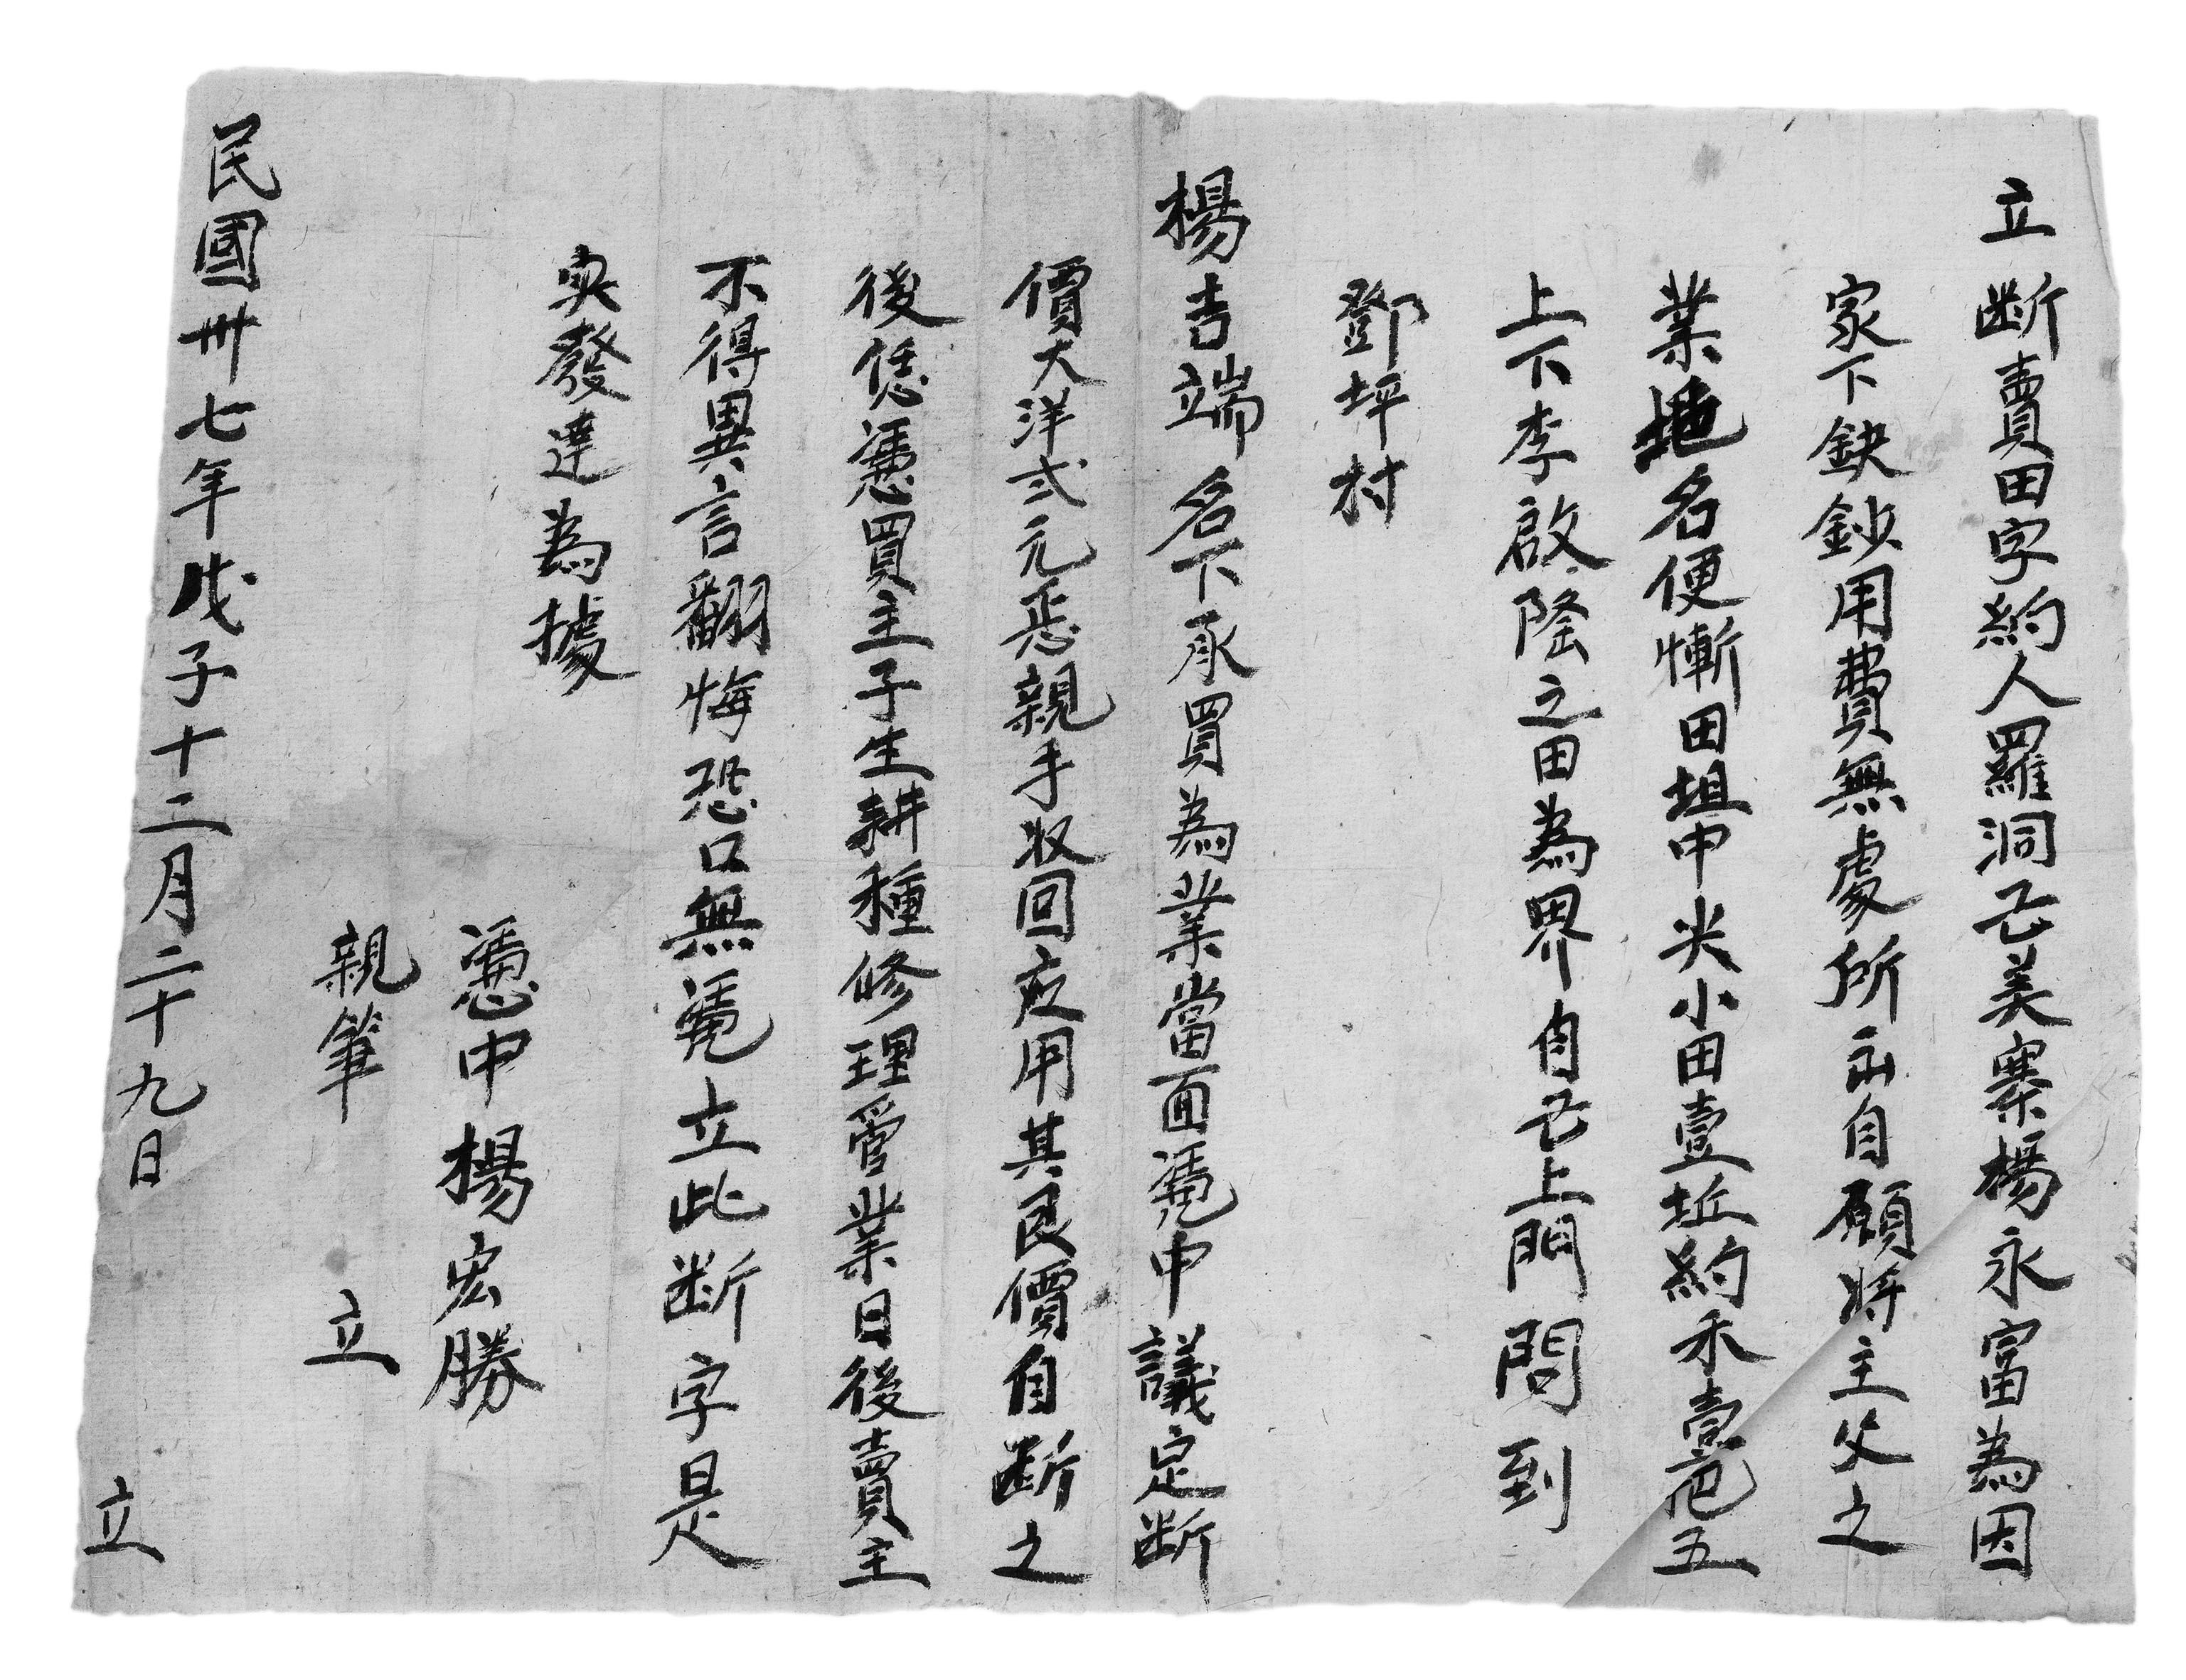 立断賣田字約人羅洞己美寨楊永富為因
家下缺鈔用費無處所出自願將主父之
業地名便慚田坦中尖小田壹坵約禾壹把五
上下李啟隆之田為界自己上門問到
鄧坪村
楊吉端名下承買為業當面憑中議定断
價大洋弍元恁親手收回应用其艮價自断之
後恁憑買主子生耕種修理管業日後賣主
不得異言翻悔恐口無憑立此断字是
実發達為據
憑中楊宏勝
親筆 立
民國卅七年戊子十二月二十九日 立